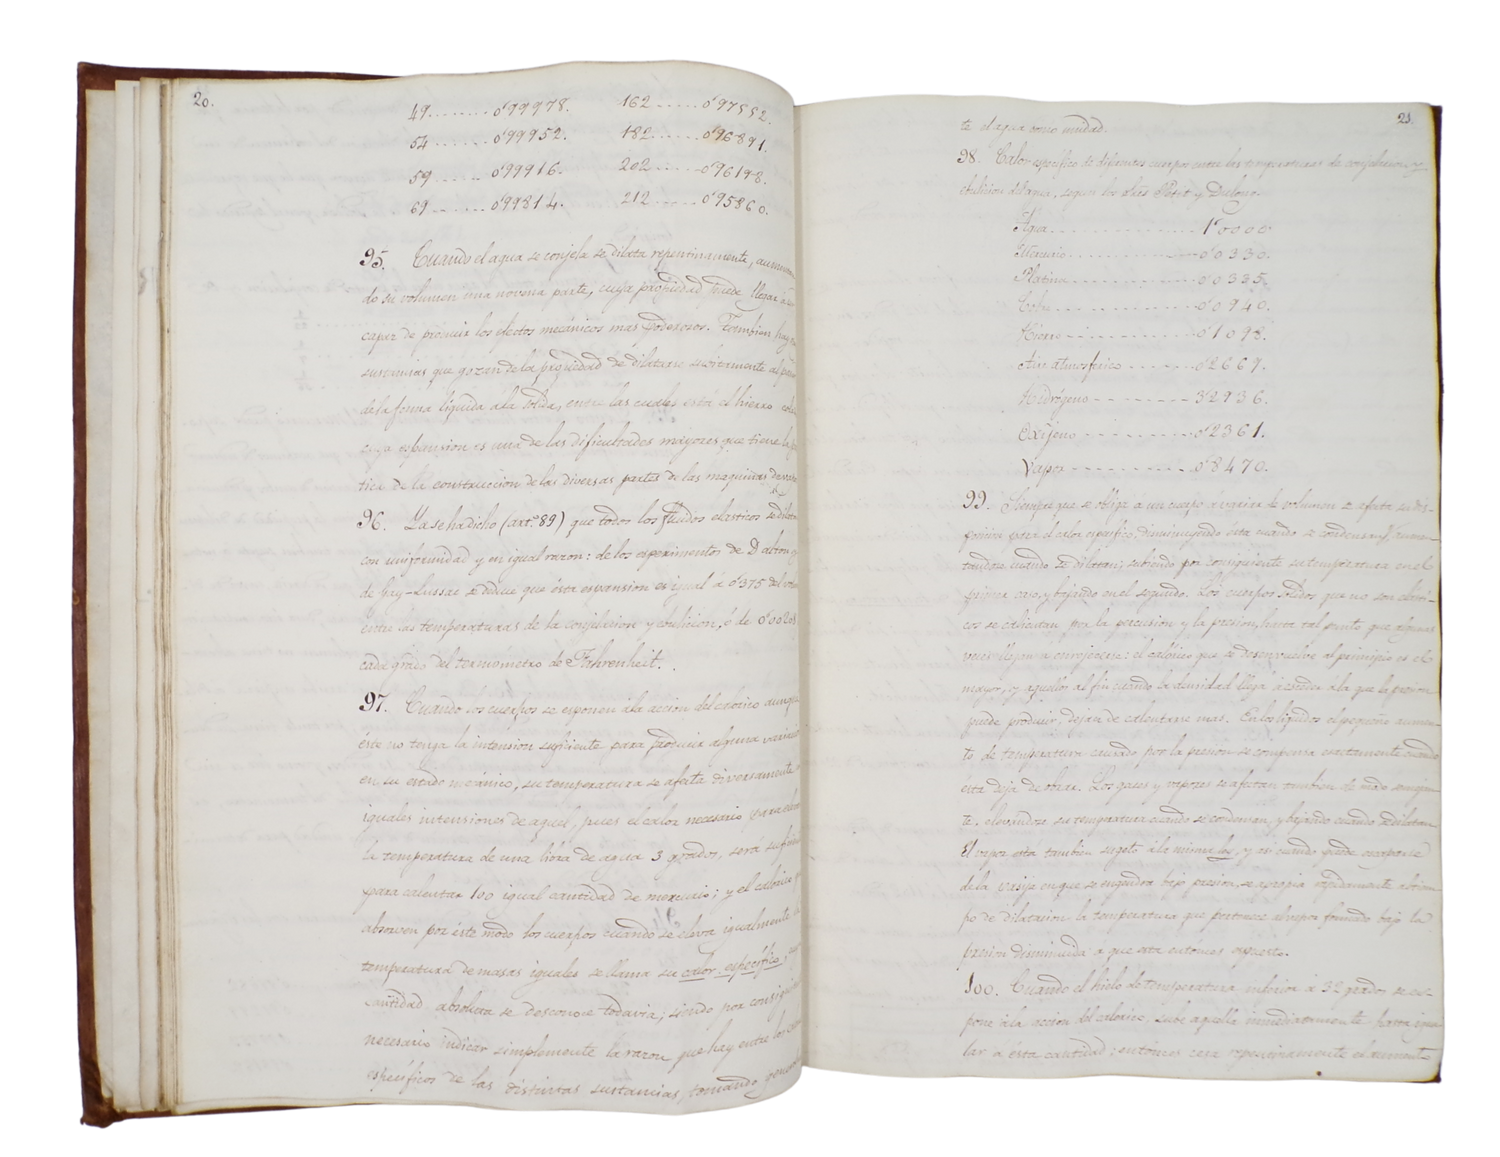 20.
49........0'99978. 162.....0'97552.
54......0'99952. 182......0'96891.
59.....0'99916. 202.....0'96198.
69......0'99814. 212.....0'95860.
95. Cuando el agua se conjela se dilata repentinamente, aumentan
do su volumen una novena parte, cuya propiedad puede llegar á ser
capaz de producir los efectos mecánicos mas poderosos. Tambien hay
sustancias que gozan de la propiedad de dilatarse subitamente al pasar
de la forma líquida a la sólida, entre las cuales está el hierro colado
cuya espansion es una de las dificultades mayores que tiene la
tica de la construccion de las diversas partes de las maquinas de vapor
96. Ya se ha dicho (art.º 89) que todos los fluidos elasticos se dilatan
con uniformidad y en igual razon: de los esperimentos de Dalton y
de Gay-Lussac se deduce que ésta espansion es igual á 0'375 del
entre las temperaturas de la conjelacion y ebulicion, ó de 0'00208
cada grado del termómetro de Fahrenheit.
97. Cuando los cuerpos se esponen á la accion del calórico aunque
éste no tenga la intension suficiente para producir alguna variacion
en su estado mecánico, su temperatura se afecta diversamente
iguales intensiones de aquel, pues el calor necesario para elevar
la temperatura de una libra de agua 3 grados, será suficiente
para calentar 100 igual cantidad de mercurio; y el calórico que
absorven por éste modo los cuerpos cuando se eleva igualmente la
temperatura de masas iguales se llama su calor específico,
cantidad absoluta se desconoce todavia; siendo por consiguiente
necesario indicar simplemente la razon que hay entre los calores
específicos de las distintas sustancias, tomando
21.
te el agua como unidad.
98. Calor específico de diferentes cuerpos entre las temperaturas de conjelacion y
ebulicion del agua, segun los Petit y Dulong.
Agua..............1'0000
Mercurio..............0'0330.
Platina..............0'0335.
Cobre..............0'0940.
Hierro..............0'1098.
Aire atmosferico.......0'2669.
Hidrógeno.........3'2936.
Oxijeno.........0'2361.
Vapor.........0'8470.
99. Siempre que se obliga á un cuerpo á variar de volumen se afecta su dis-
posicion para el calor específico, disminuyendo éste cuando se condensan y aumen-
tandose cuando se dilatan; subiendo por consiguiente su temperatura en el
primer caso, y bajando en el segundo. Los cuerpos sólidos que no son elásti-
cos se calientan por la percusion y la presion, hasta tal punto que algunas
veces llegan a enrojecerse: el calórico que se desenvuelve al principio es el
mayor, y aquellos al fin cuando la densidad llega á esceder á la que la presion
puede producir, dejan de calentarse mas. En los líquidos el pequeño aumen-
to de temperatura causado por la presion se compensa exactamente cuando
ésta deja de obrar. Los gases y vapores se afectan tambien de modo semejan-
te, elevandose su temperatura cuando se condensan, y bajando cuando se dilatan.
El vapor esta tambien sugeto á la misma ley, y asi cuando puede escaparse
de la vasija en que se engendra bajo presion, se apropia rapidamente al tiem-
po de dilatarse la temperatura que pertenece al vapor formado bajo la
presion disminuida á que esta entónces espuesto.
100. Cuando el hielo de temperatura inferior á 32 grados se es-
pone á la accion del calórico, sube aquella inmediatamente hasta igua-
lar á ésta cantidad; entónces cesa repentinamente el aumento